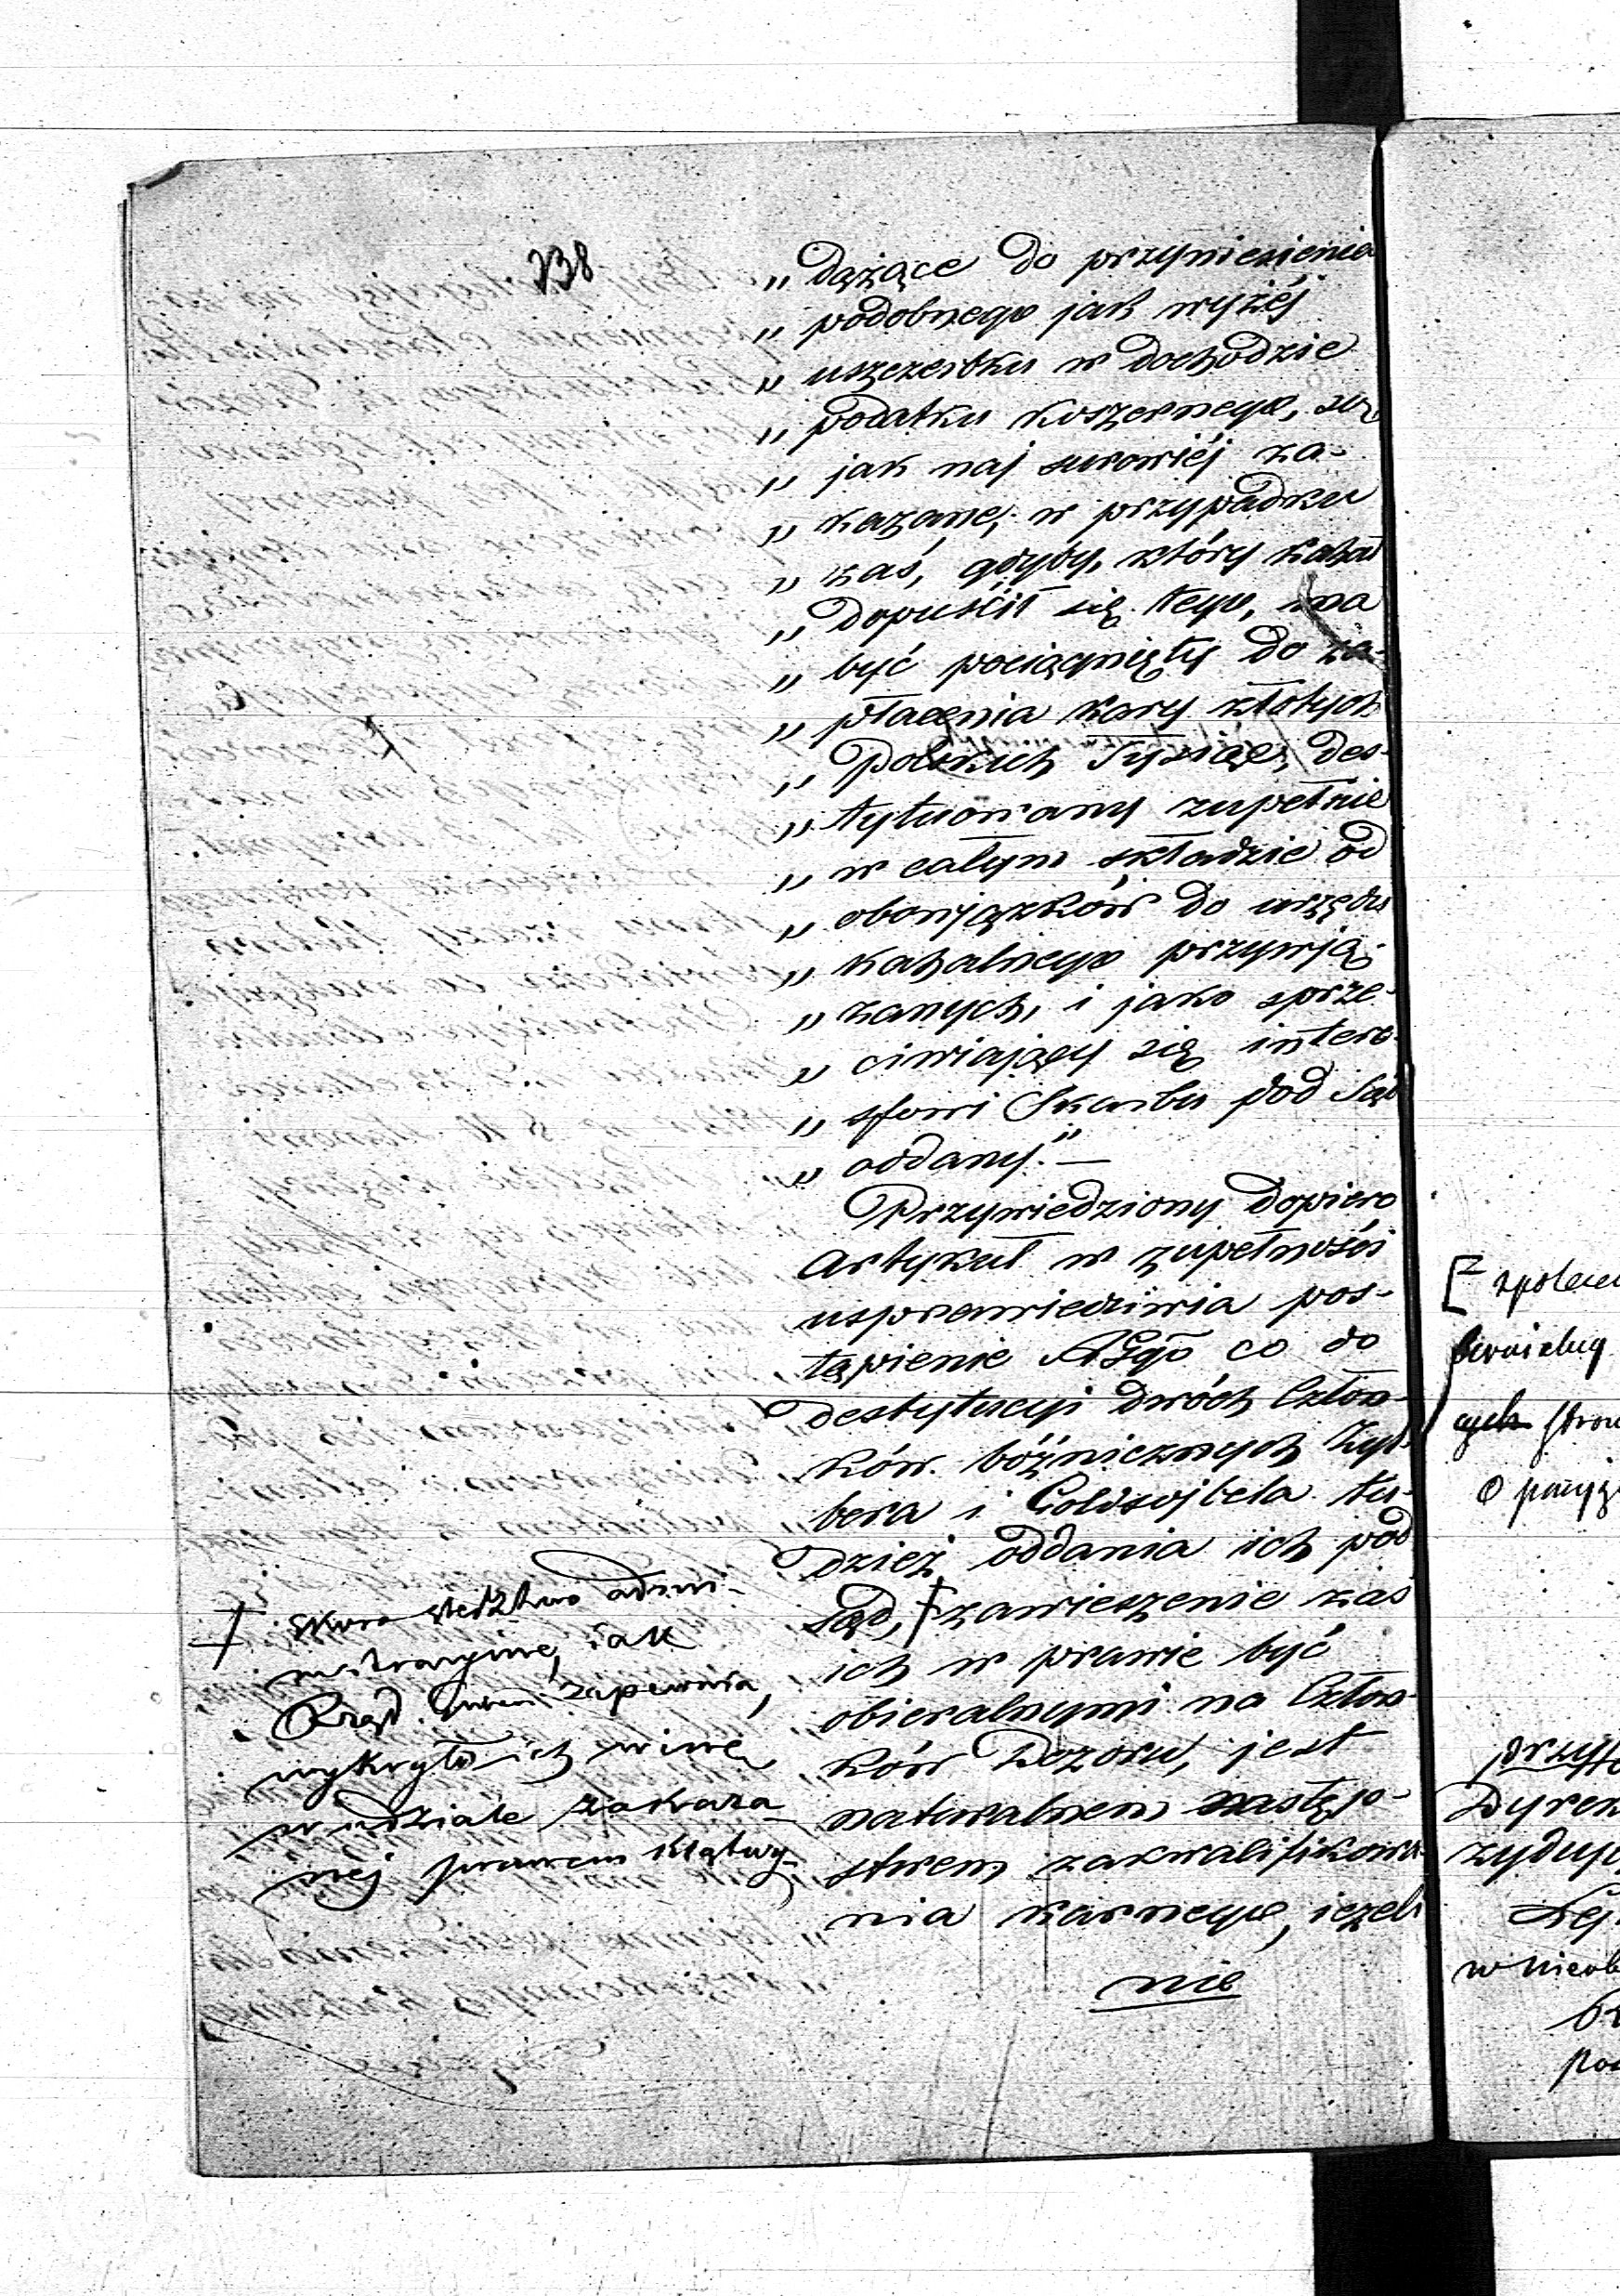 238
„ dążące do przyniesienia
„ podobnego jak wyżéj
„ uszczerbku w dochodzie
„ podatku koszernego, są
„ jak naj surowiéj za-
„ kazane; w przypadku
„ zaś, gdyby, który kahał
„ dopuścił się tego, ma
„ być pociągnięty do za-
„ płacenia kary złotych
„ Polskich Tysiąc, des-
„ tytuowany zupełnie
„ w całym składzie od
„ obowjązków do urzędu
„ kahalnego przywją-
„ zanych, i jako sprze-
„ ciwiający się intere-
„ sowi Skarbu pod Sąd
„ oddany." —
Przywiedziony dopiero
artykuł w zupełności
usprawiedliwia pos-
tąpienie co do
destytucyi dwóch Człon-
ków bóżnicznych Zyl-
bera i Goldsojbela tu-
dzież oddania ich pod
sąd, + zawieszenie zaś
ich w prawie być
obieralnymi na Człon-
ków Dozoru, jest
naturalnem następ-
stwem zakwalifikowa-
nia karnego, ieżeli
nie
+ skoro śledztwo admi-
nistracyjne, iak
Rząd Gubern: zapewnia,
wykryło ich winę
w udziale zakaza-
nej prawem klątwy
[z
o